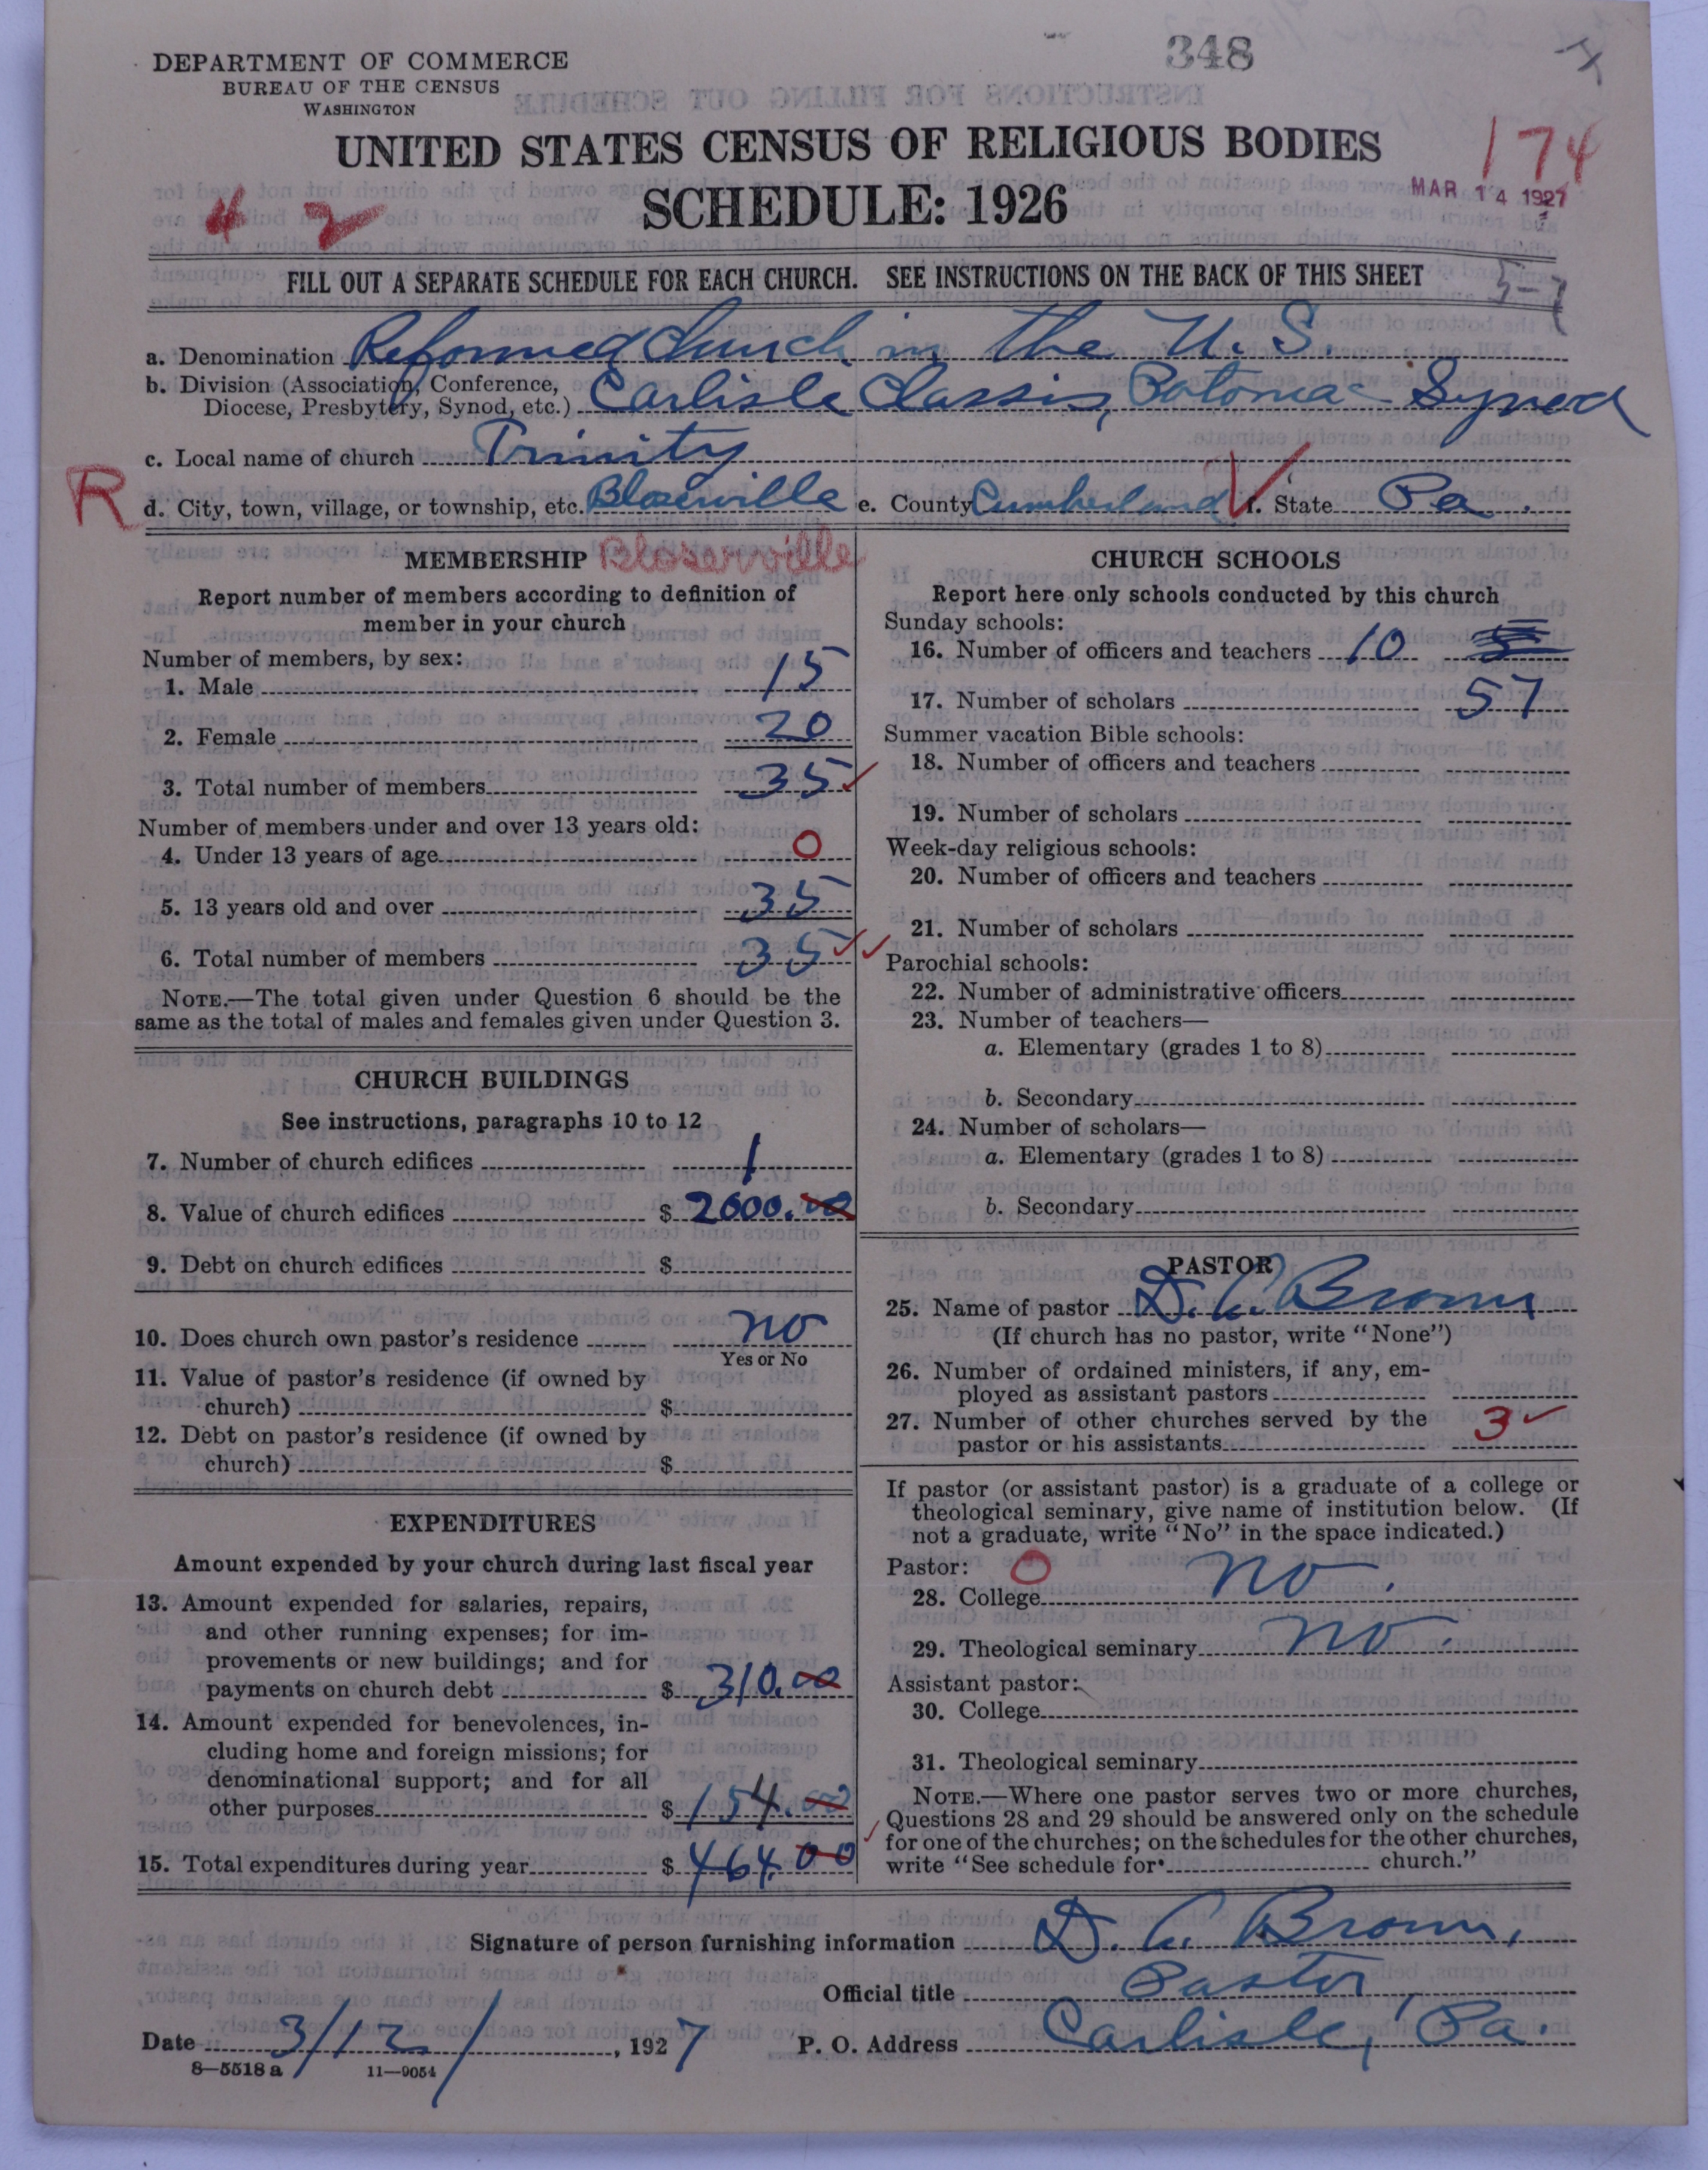 DEPARTMENT OF COMMERCE
BUREAU OF THE CENSUS
WASHINGTON
348
UNITED STATES CENSUS OF RELIGIOUS BODIES
SCHEDULE: 1926
174
MAR 14 1927
4 2
FILL OUT A SEPARATE SCHEDULE FOR EACH CHURCH. SEE INSTRUCTIONS ON THE BACK OF THIS SHEET
a. Denomination Reformed Church in the U.S.
b. Division (Association, Conference,
Diocese, Presbytery, Synod, etc.) Carlisle Classis, Potomac Synod
c. Local name of church Trinity
R
d. City, town, village, or township, etc. Bloserville e. County Cumberland f. State Pa.
MEMBERSHIP Bloserville
Report number of members according to definition of
member in your church
Number of members, by sex:
1. Male 15
2. Female 20
3. Total number of members 35
Number of members under and over 13 years old:
4. Under 13 years of age 0
5. 13 years old and over 35
6. Total number of members 35
NOTE.—The total given under Question 6 should be the
same as the total of males and females given under Question 3.
CHURCH BUILDINGS
See instructions, paragraphs 10 to 12
7. Number of church edifices 1
8. Value of church edifices $ 2000.00
9. Debt on church edifices $
10. Does church own pastor's residence no
Yes or No
11. Value of pastor's residence (if owned by
church) $
12. Debt on pastor's residence (if owned by
church) $
EXPENDITURES
Amount expended by your church during last fiscal year
13. Amount expended for salaries, repairs,
and other running expenses; for im-
provements or new buildings; and for
payments on church debt $ 310.00
14. Amount expended for benevolences, in-
cluding home and foreign missions; for
denominational support; and for all
other purposes $ 154.00
15. Total expenditures during year $ 464.00
CHURCH SCHOOLS
Report here only schools conducted by this church
Sunday schools:
16. Number of officers and teachers 10
17. Number of scholars 57
Summer vacation Bible schools:
18. Number of officers and teachers
19. Number of scholars
Week-day religious schools:
20. Number of officers and teachers
21. Number of scholars
Parochial schools:
22. Number of administrative officers
23. Number of teachers—
a. Elementary (grades 1 to 8)
b. Secondary
24. Number of scholars—
a. Elementary (grades 1 to 8)
b. Secondary
PASTOR
25. Name of pastor D. C. Brown
(If church has no pastor, write "None")
26. Number of ordained ministers, if any, em-
ployed as assistant pastors
27. Number of other churches served by the
pastor or his assistants 3
If pastor (or assistant pastor) is a graduate of a college or
theological seminary, give name of institution below. (If
not a graduate, write "No" in the space indicated.)
Pastor: 0
28. College no.
29. Theological seminary no.
Assistant pastor:
30. College
31. Theological seminary
NOTE.—Where one pastor serves two or more churches,
Questions 28 and 29 should be answered only on the schedule
for one of the churches; on the schedules for the other churches,
write "See schedule for church."
Signature of person furnishing information D. C. Brown,
Official title Pastor
Date 3/12/, 1927 P. O. Address Carlisle, Pa.
8—5518 a 11—9054